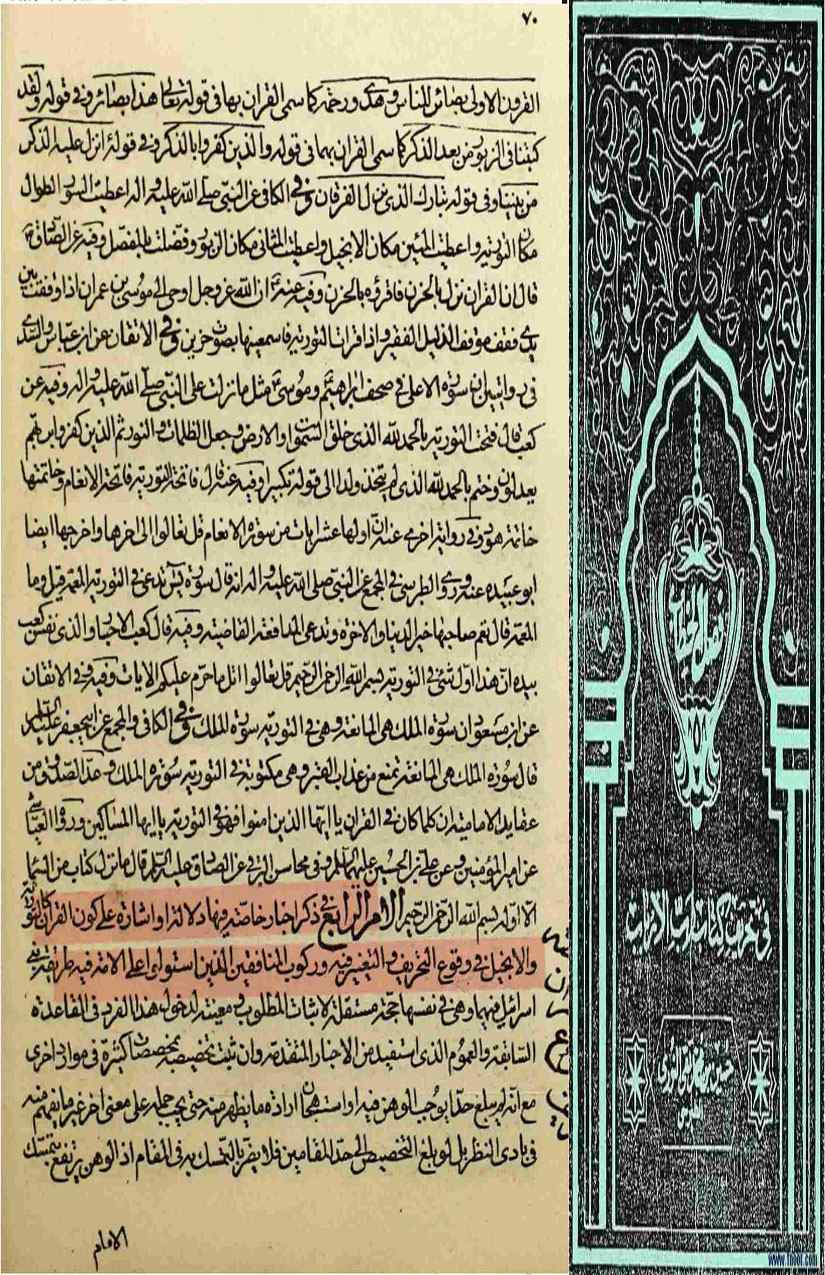 ٧٠
القرون الاولى بصائر للناس وهدى ورحمة كما سمى القران بها فى قوله تعالى هذا بصائر وفى قوله ولقد
كتبنا فى الزبور من بعد الذكر كما سمى القران بهما فى قوله والذين كفروا بالذكر وفى قوله ءانزل عليه الذكر
من بيننا وفى قوله تبارك الذى نزل الفرقان وفى الكافى عن النبى صلى الله عليه واله اعطيت السور الطوال
مكان التورية واعطيت المئين مكان الانجيل واعطيت المثانى مكان الزبور وفضلت بالمفصل وفيه عن الصادق
قال ان القران نزل بالحزن فاقرؤه بالحزن وفيه عنه ان الله عز وجل اوحى الى موسى بن عمران اذا وقفت بين
يدى فقف موقف الذليل الفقير واذا قرات التورية فاسمعنيها بصوت حزين وفى الاتقان عن ابن عباس والسدى
فى روايتين ان سورة الاعلى فى صحف ابراهيم وموسى مثل ما نزلت على النبى صلى الله عليه واله وفيه عن
كعب قال فتحت التورية بالحمد لله الذى خلق السموات والارض وجعل الظلمات والنور ثم الذين كفروا بربهم
يعدلون وختم بالحمد لله الذى لم يتخذ ولدا الى قوله تكبيرا وفيه عنه قال فاتحة التورية فاتحة الانعام وخاتمتها
خاتمة هود وفى رواية اخرى عنه ان اولها عشر ايات من سورة الانعام قل تعالوا الى اخرها واخرجها ايضا
ابو عبيده عنه وروى الطبرسى فى المجمع عن النبى صلى الله عليه واله انه قال سورة يس تدعى فى التورية المعمة قيل وما
المعمة قال تعم صاحبها خير الدنيا والاخرة وتدعى المدافعة القاضية وفيه قال كعب الاحبار والذى نفس كعب
بيده ان هذا اول شئ فى التورية بسم الله الرحمن الرحيم قل تعالوا اتل ما حرم عليكم الايات وفيه وفى الاتقان
عن ابن مسعود ان سورة الملك هى المانعة وهى فى التورية سورة الملك وفى الكافى والمجمع عن ابيجعفر عليه السلم
قال سورة الملك هى المانعة تمنع من عذاب القبر وهى مكتوبة فى التورية سورة الملك وعد الصدوق من
عقايد الامامية ان كلما كان فى القران يا ايها الذين امنوا فهو فى التورية يا ايها المساكين ورواه العياشى
عن امير المؤمنين وعن على بن الحسين عليهما السلم وفى محاسن البرقى عن الصادق عليه السلم قال ما نزل كتاب من السماء
الا اوله بسم الله الرحمن الرحيم الامر الرابع فى ذكر اخبار خاصة فيها دلالة او اشارة على كون القران كالتورية
والانجيل فى وقوع التحريف والتغيير فيه وركوب المنافقين الذين استولوا على الامة فيه طريقة بنى
اسرائيل فيهما وهى فى نفسها حجة مستقلة لاثبات المطلوب ومعينة لدخول هذا الفرد فى القاعدة
السابقة والعموم الذى استفيد من الاخبار المتقدمة وان ثبت تخصيصه بمخصصات كثيرة فى موارد اخرى
مع انه لم يبلغ حدا يوجب الوهن فيه او استهجان ارادة ما يظهر منه حتى يجب حمله على معنى اخر غير ما يفهم منه
فى بادى النظر بل لو بلغ التخصيص الى حد المقامين فلا يضر بالتمسك به فى المقام اذ الوهن يرتفع بتمسك
الامام
فصل الخطاب
فى تحريف كتاب رب الارباب
حسين محمد تقى النورى
الطبرسى